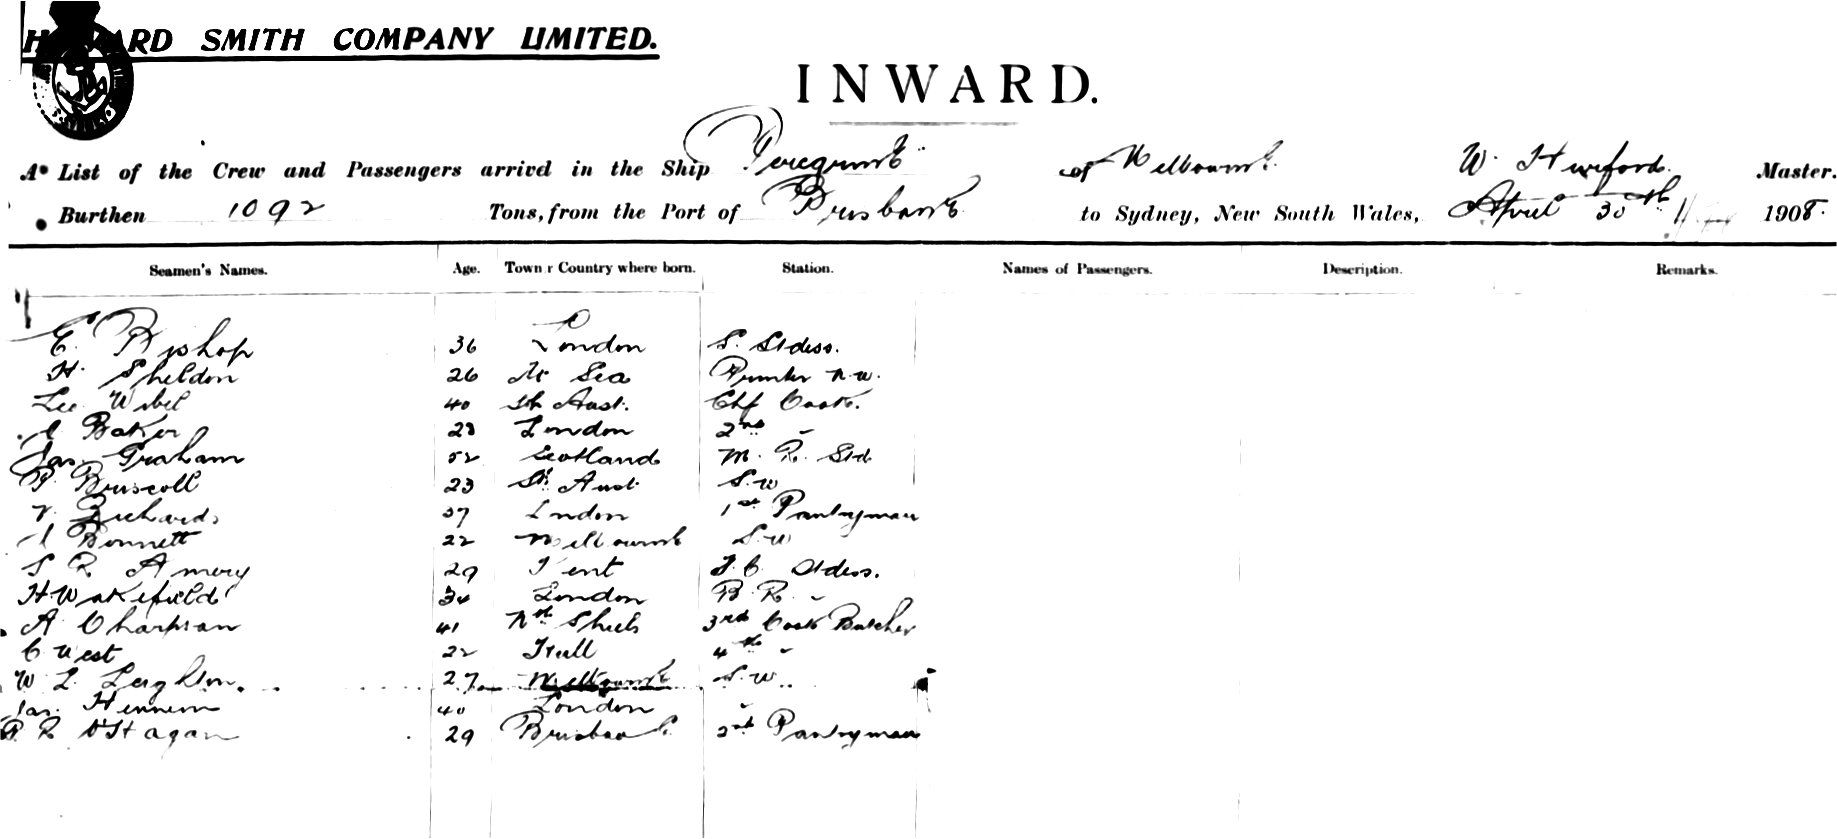 HOWARD SMITH COMPANY LIMITED.
INWARD.
A List of the Crew and Passengers arrived in the Ship Peregrine of Melbourne. W. Hurford. Master.
Burthen 1092 Tons, from the Port of Brisbane to Sydney, New South Wales, April 30th 1908.
Seamen's Names. Age. Town r Country where born. Station. Names of Passengers. Description. Remarks.
E. Bishop 36 London S. Stdess.
H. Sheldon 26 At Sea Printer
Lee 40 Sth Aust. Chf Cook.
Baker 23 London 2nd "
Jas. Graham 52 Scotland M. R. Std
P. Briscoll 23 Sth Aust S.W
Richards 37 London 1st Pantryman
Bonnett 22 Melbourne S.W
S R Amery 29 Kent Stdess.
H. Wakefield 34 London B. R. "
A Charman 41 Nth Shiels 3rd Cook Butcher
C West 22 Hull 4th "
W. L. Leighton. 27 Melbourne S.W
Jas. 40 London "
R O'Hagan 29 Brisbane 2nd Pantryman